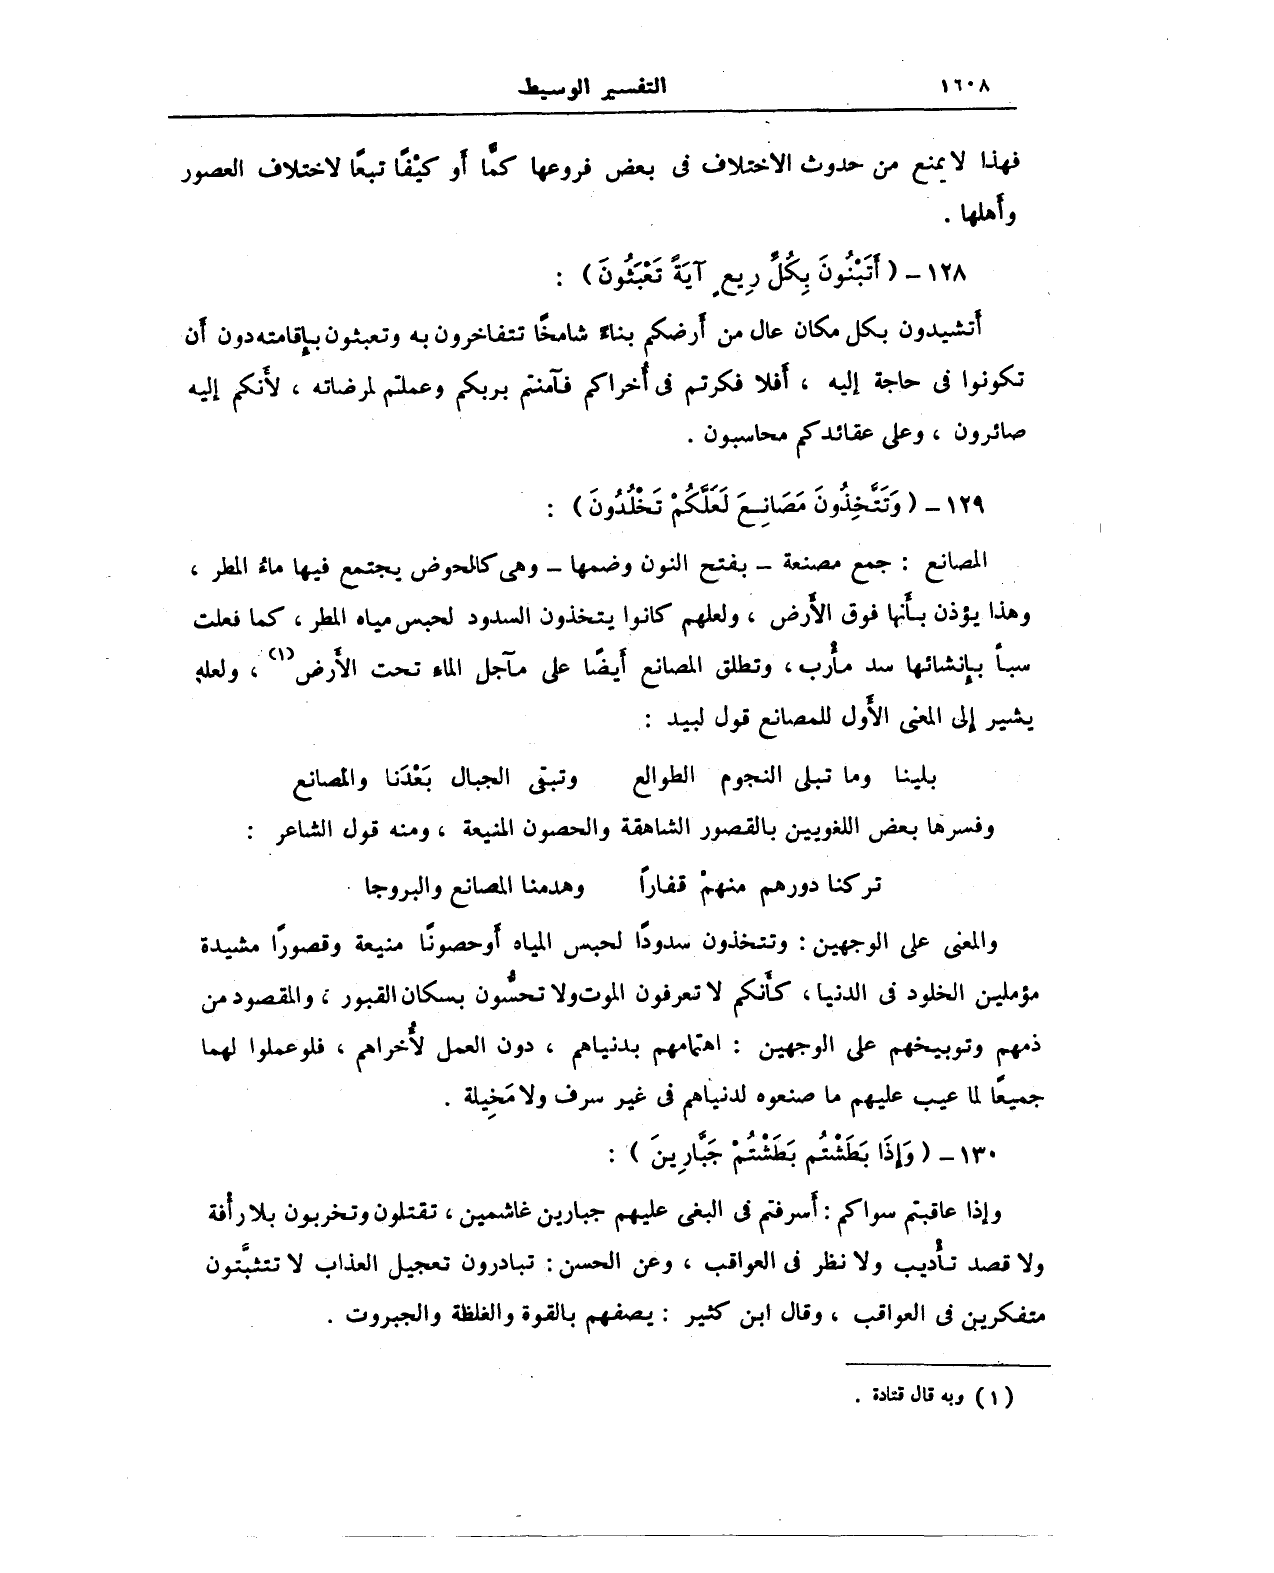 ١٦٠٨ التفسير الوسيط
فهذا لا يمنع من حدوث الاختلاف فى بعض فروعها كمًّا أو كيْفًا تبعًا لاختلاف العصور
وأهلها .
١٢٨ – ( أَتَبْنُونَ بِكُلِّ رِيعٍ آيَةً تَعْبَثُونَ ) :
أتشيدون بكل مكان عال من أرضكم بناءً شامخًا تتفاخرون به وتعبثون بإقامته دون أن
تكونوا فى حاجة إليه ، أفلا فكرتم فى أُخراكم فآمنتم بربكم وعملتم لمرضاته ، لأنكم إليه
صائرون ، وعلى عقائدكم محاسبون .
١٢٩ – ( وَتَتَّخِذُونَ مَصَانِعَ لَعَلَّكُمْ تَخْلُدُونَ ) :
المصانع : جمع مصنعة – بفتح النون وضمها – وهى كالحوض يجتمع فيها ماءُ المطر ،
وهذا يؤذن بأنها فوق الأرض ، ولعلهم كانوا يتخذون السدود لحبس مياه المطر ، كما فعلت
سبأ بإنشائها سد مأرب ، وتطلق المصانع أيضًا على مآجل الماء تحت الأرض(١) ، ولعله
يشير إلى المعنى الأول للمصانع قول لبيد :
بلينا وما تبلى النجوم الطوالع وتبقى الجبال بَعْدَنا والمصانع
وفسرها بعض اللغويين بالقصور الشاهقة والحصون المنيعة ، ومنه قول الشاعر :
تركنا دورهم منهمْ قفاراً وهدمنا المصانع والبروجا
والمعنى على الوجهين : وتتخذون سدودًا لحبس المياه أو حصونًا منيعة وقصورًا مشيدة
مؤملين الخلود فى الدنيا ، كأنكم لا تعرفون الموت ولا تحسُّون بسكان القبور ؛ والمقصود من
ذمهم وتوبيخهم على الوجهين : اهتمامهم بدنياهم ، دون العمل لأُخراهم ، فلو عملوا لهما
جميعًا لما عيب عليهم ما صنعوه لدنياهم فى غير سرف ولا مَخِيلة .
١٣٠ – ( وَإِذَا بَطَشْتُم بَطَشْتُمْ جَبَّارِينَ ) :
وإذا عاقبتم سواكم : أسرفتم فى البغى عليهم جبارين غاشمين ، تقتلون وتخربون بلا رأفة
ولا قصد تأديب ولا نظر فى العواقب ، وعن الحسن : تبادرون تعجيل العذاب لا تتثبَّتون
متفكرين فى العواقب ، وقال ابن كثير : يصفهم بالقوة والغلظة والجبروت .
(١) وبه قال قتادة .